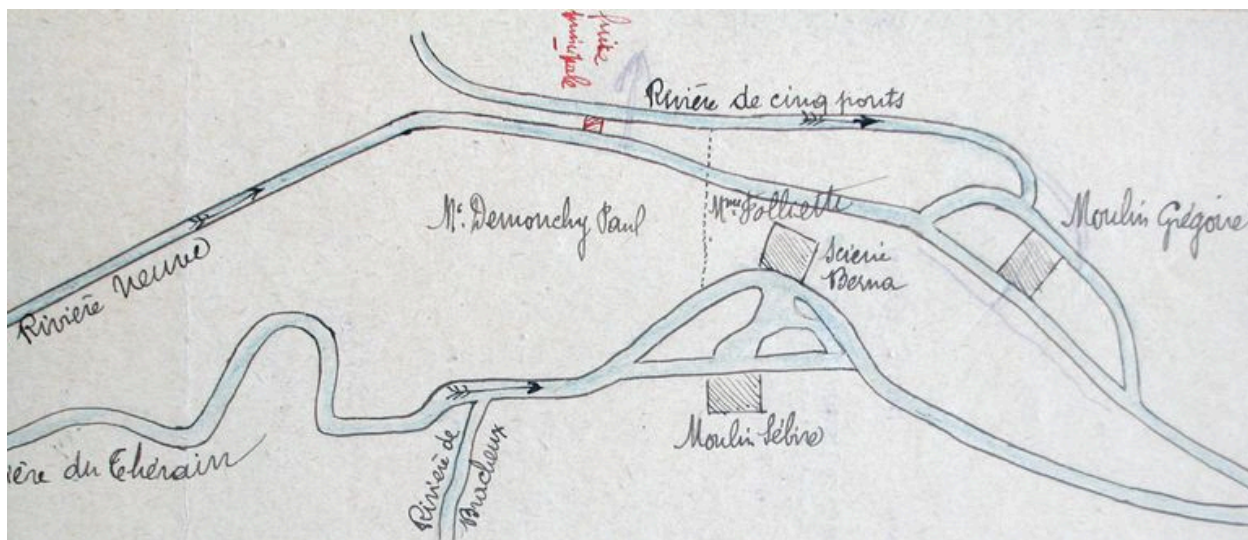 fuite
principale
Rivière de cinq ponts
Mr. Demonchy Paul
Mme Folliette
Moulin Grégoire
Scierie
Berna
Rivière Neuve
Moulin Sébire
ière du Thérain
Rivière de
Bracheux